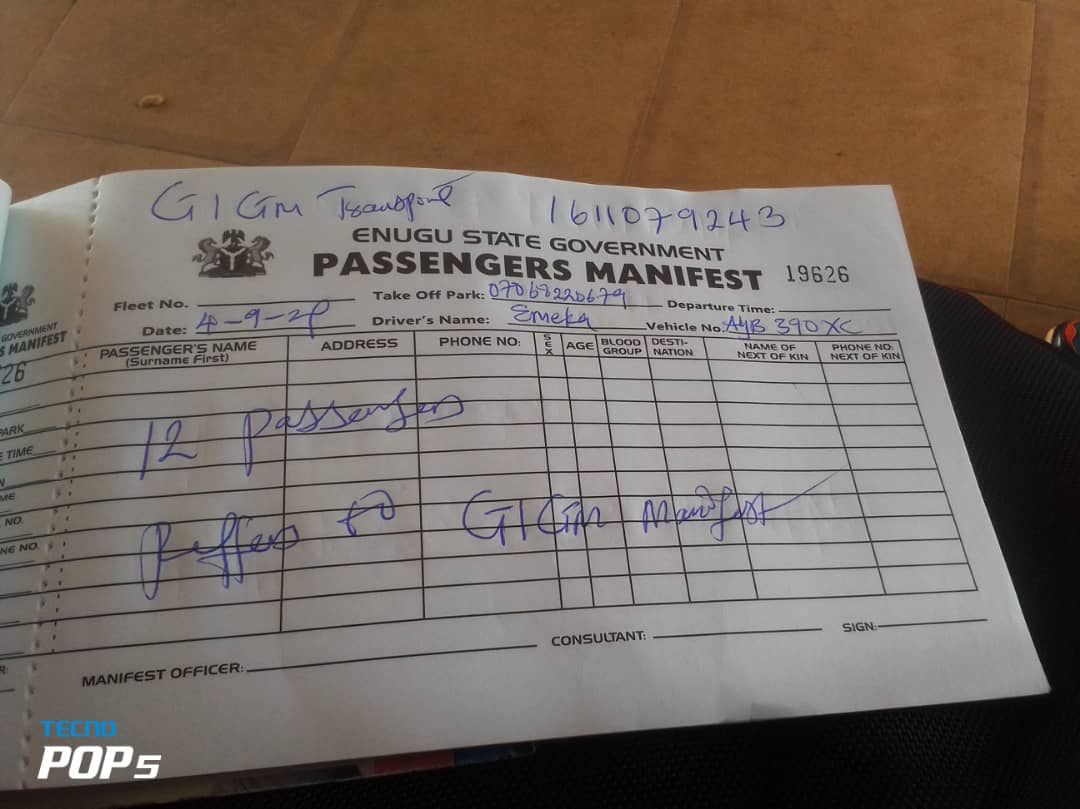 GIGM Transport 1611079243
ENUGU STATE GOVERNMENT
PASSENGERS MANIFEST 19626
Fleet No. Take Off Park: 07068220679 Departure Time:
Date: 4-9-2 Driver's Name: Emeka Vehicle No: AYB 390XC
PASSENGER'S NAME (Surname First) ADDRESS PHONE NO: SEX AGE BLOOD GROUP DESTI-NATION NAME OF NEXT OF KIN PHONE NO: NEXT OF KIN
12 Passengers
Reffers to GIGM Manifest
MANIFEST OFFICER: CONSULTANT: SIGN:
GOVERNMENT
S MANIFEST
26
PARK
E TIME
N
ME
NO.
NE NO.
R:
TECNO
POP 5